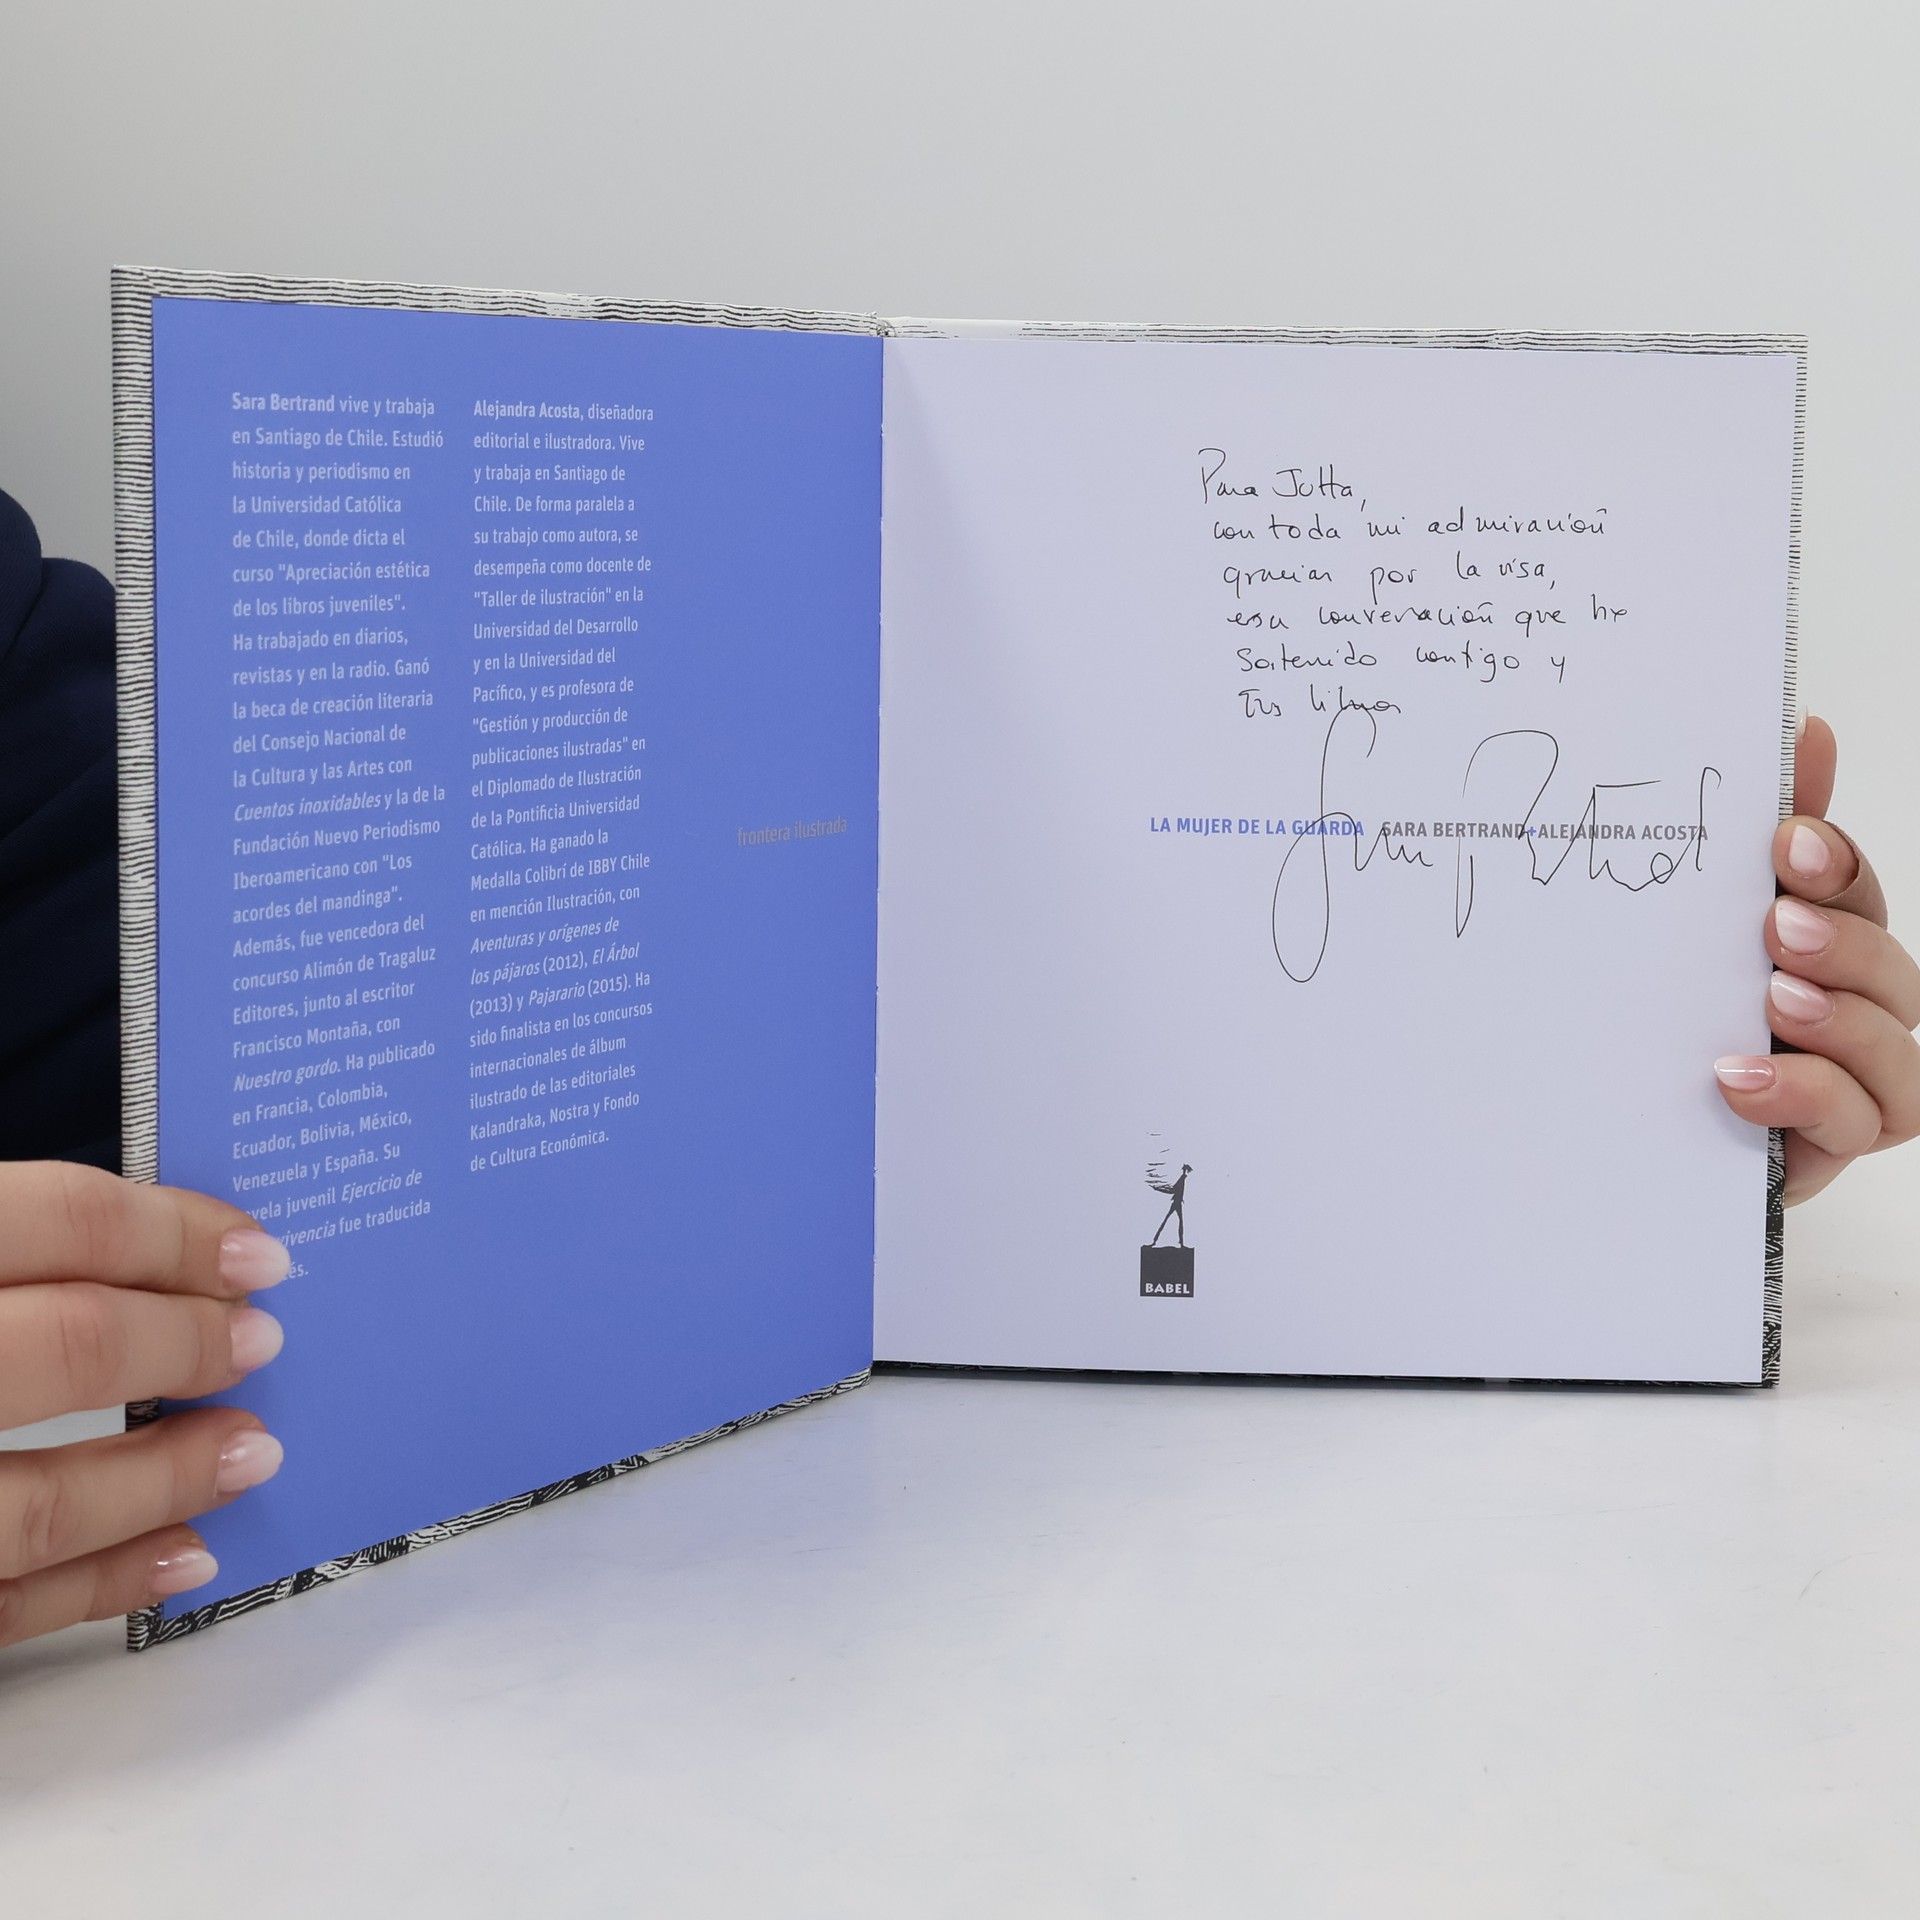 Sara Bertrand vive y trabaja
en Santiago de Chile. Estudió
historia y periodismo en
la Universidad Católica
de Chile, donde dicta el
curso "Apreciación estética
de los libros juveniles".
Ha trabajado en diarios,
revistas y en la radio. Ganó
la beca de creación literaria
del Consejo Nacional de
la Cultura y las Artes con
Cuentos inoxidables y la de la
Fundación Nuevo Periodismo
Iberoamericano con "Los
acordes del mandinga".
Además, fue vencedora del
concurso Alimón de Tragaluz
Editores, junto al escritor
Francisco Montaña, con
Nuestro gordo. Ha publicado
en Francia, Colombia,
Ecuador, Bolivia, México,
Venezuela y España. Su
vela juvenil Ejercicio de
vivencia fue traducida
és.
Alejandra Acosta, diseñadora
editorial e ilustradora. Vive
y trabaja en Santiago de
Chile. De forma paralela a
su trabajo como autora, se
desempeña como docente de
"Taller de ilustración" en la
Universidad del Desarrollo
y en la Universidad del
Pacífico, y es profesora de
"Gestión y producción de
publicaciones ilustradas" en
el Diplomado de Ilustración
de la Pontificia Universidad
Católica. Ha ganado la
Medalla Colibrí de IBBY Chile
en mención Ilustración, con
Aventuras y orígenes de
los pájaros (2012), El Árbol
(2013) y Pajarario (2015). Ha
sido finalista en los concursos
internacionales de álbum
ilustrado de las editoriales
Kalandraka, Nostra y Fondo
de Cultura Económica.
frontera ilustrada
Para Jutta,
con toda mi admiración
gracias por la
esa conversación que he
sostenido contigo y
tus libros
Sara Bertrand
LA MUJER DE LA GUARDA SARA BERTRAND+ALEJANDRA ACOSTA
BABEL